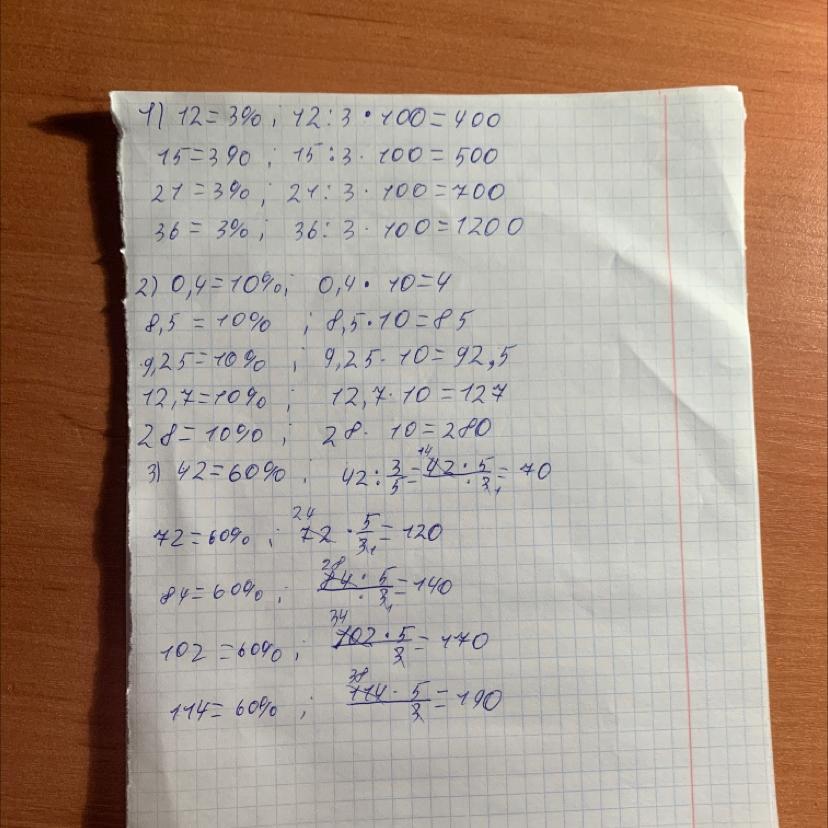 1) 12=3%; 12:3·100=400
15=3%; 15:3·100=500
21=3%; 21:3·100=700
36=3%; 36:3·100=1200
2) 0,4=10%; 0,4·10=4
8,5=10%; 8,5·10=85
9,25=10%; 9,25·10=92,5
12,7=10%; 12,7·10=127
28=10%; 28·10=280
3) 42=60%; 42:3/5=14 42·5/3 1=70
72=60%; 24 72·5/3 1=120
84=60%; 28 84·5/·3 1=140
102=60%; 34 102·5/3=170
114=60%; 38 114·5/3=190